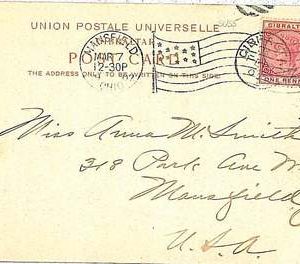 UNION POSTALE UNIVERSELLE
GIBRALTAR
POST CARD
THE ADDRESS ONLY TO BE WRITTEN ON THIS SIDE
MANSFIELD
MAR 7
12-30P
OHIO
GIBRAL
ONE PEN
Miss Anna M. Smith
318 Park Ave W
Mansfield
U.S.A